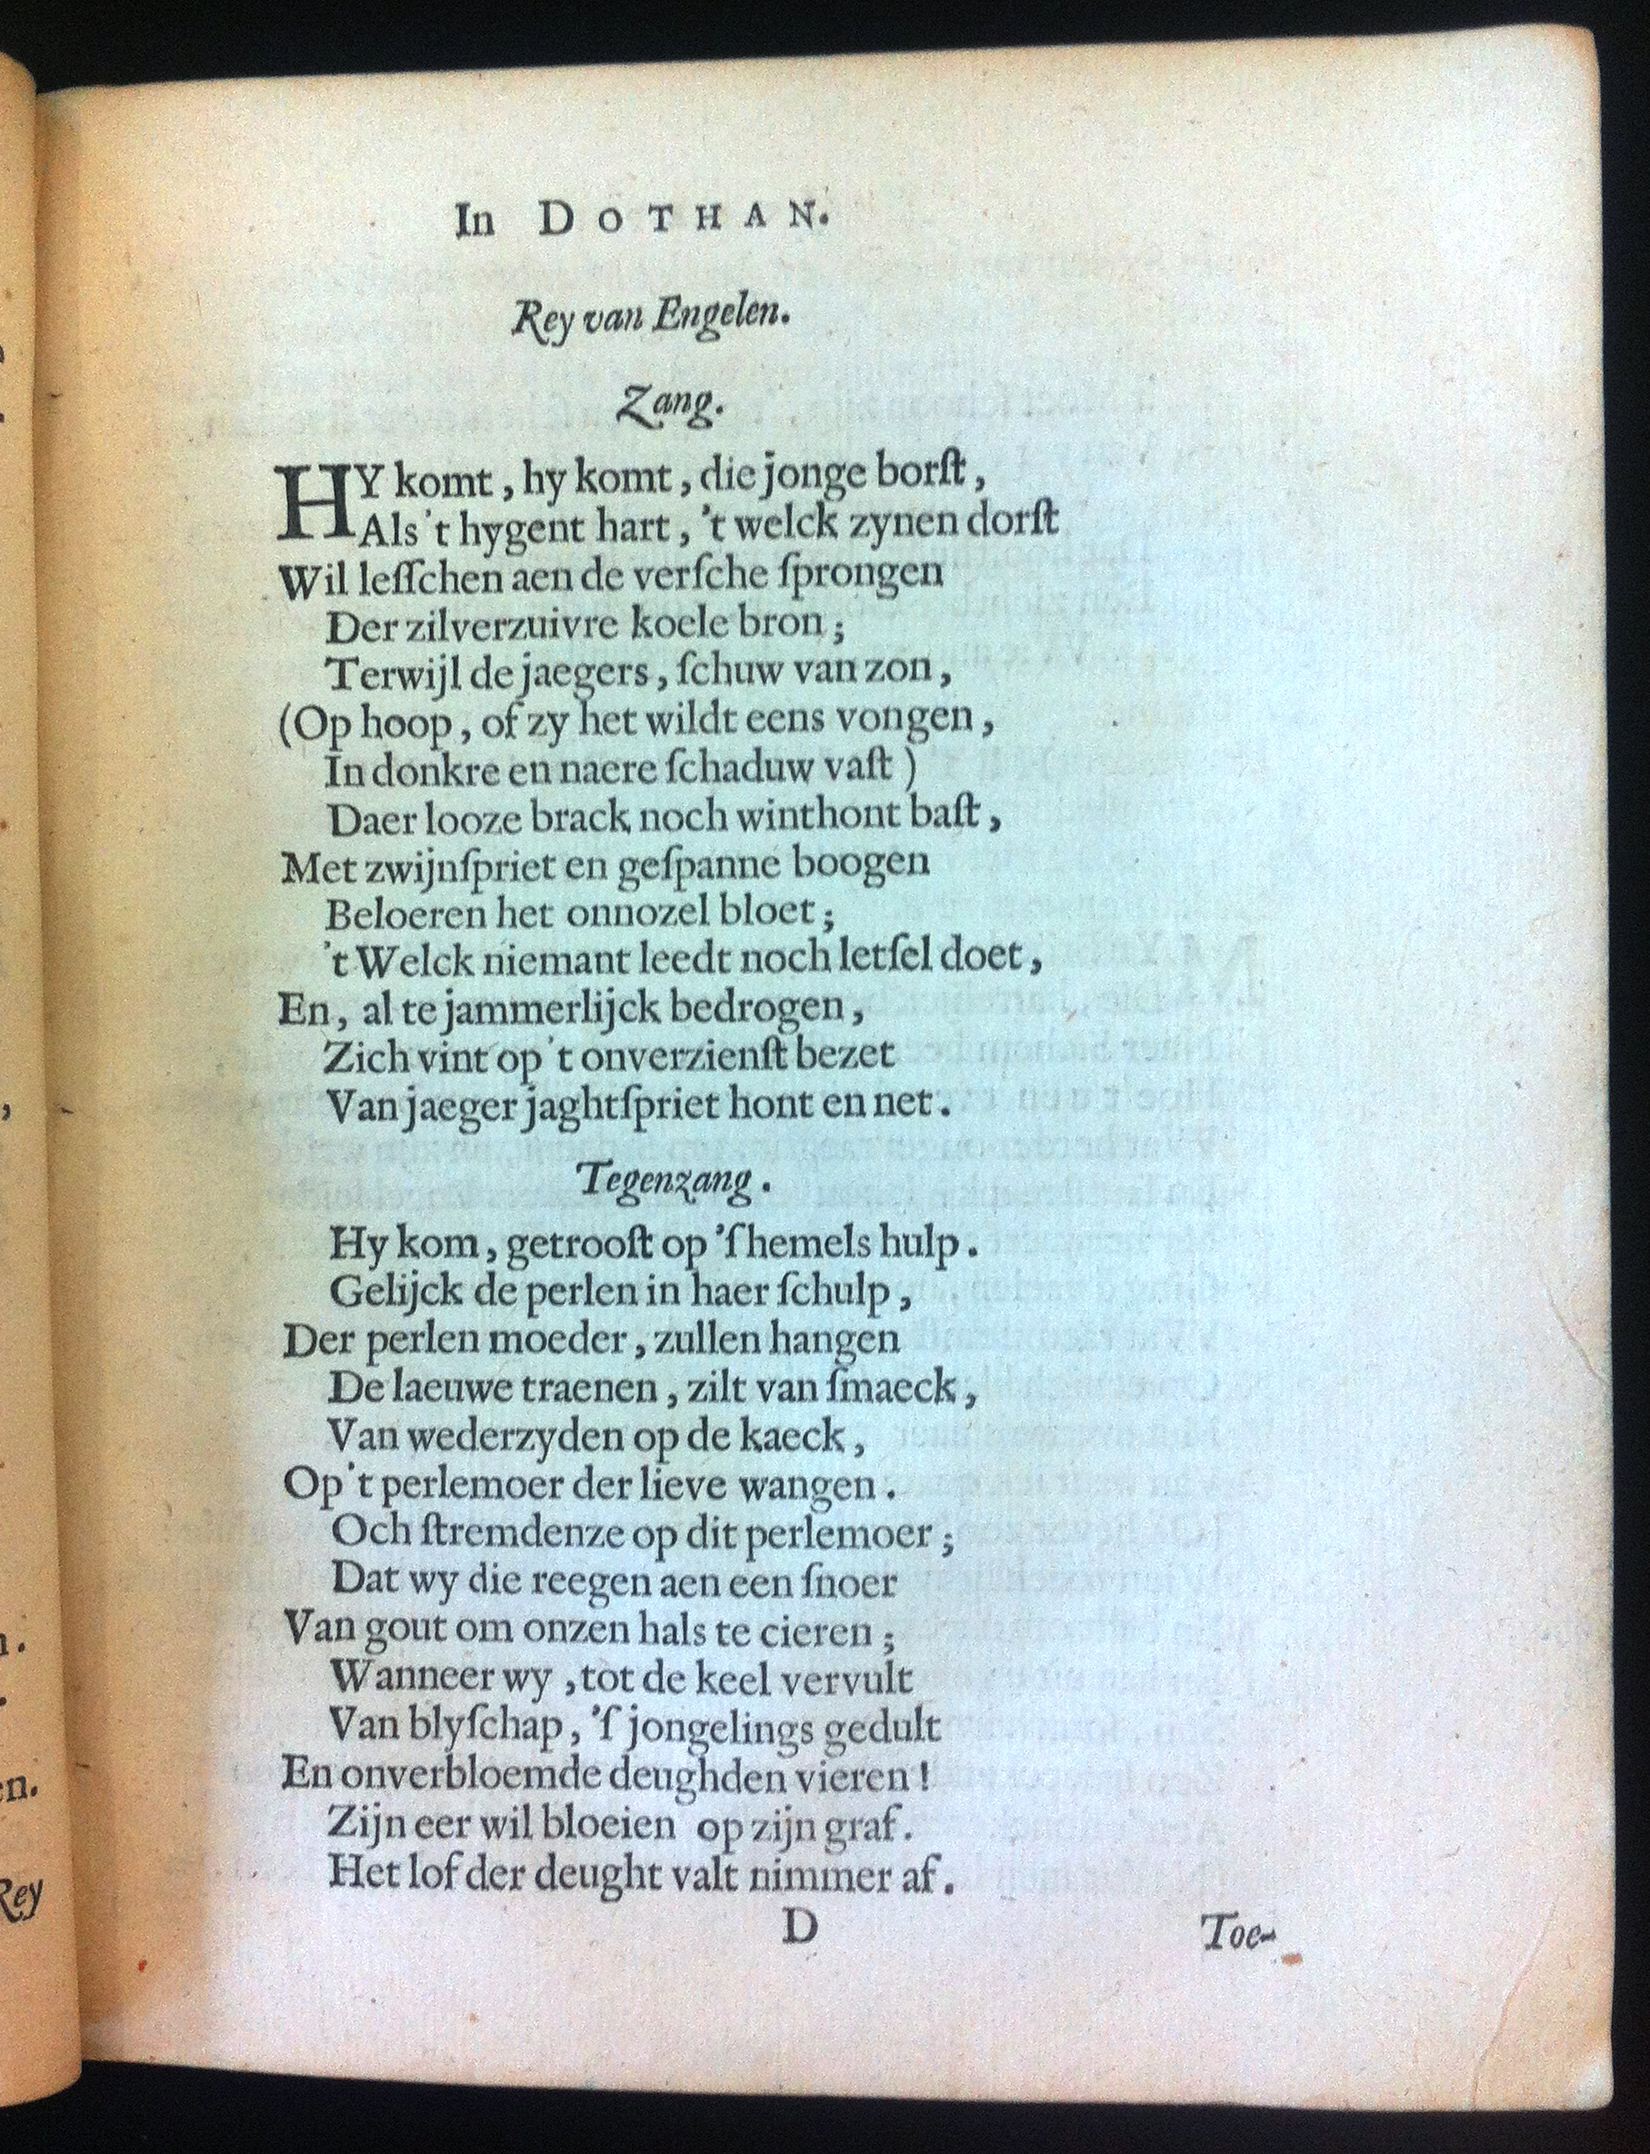 In DOTHAN.
Rey van Engelen.
Zang.
HY komt, hy komt, die jonge borſt,
Als 't hygent hart, 't welck zynen dorſt
Wil leſſchen aen de verſche ſprongen
Der zilverzuivre koele bron;
Terwijl de jaegers, ſchuw van zon,
(Op hoop, of zy het wildt eens vongen,
In donkre en naere ſchaduw vaſt)
Daer looze brack noch winthont baſt,
Met zwijnſpriet en geſpanne boogen
Beloeren het onnozel bloet;
't Welck niemant leedt noch letſel doet,
En, al te jammerlijck bedrogen,
Zich vint op 't onverzienſt bezet
Van jaeger jaghtſpriet hont en net.
Tegenzang.
Hy kom, getrooſt op 'ſhemels hulp.
Gelijck de perlen in haer ſchulp,
Der perlen moeder, zullen hangen
De laeuwe traenen, zilt van ſmaeck,
Van wederzyden op de kaeck,
Op 't perlemoer der lieve wangen.
Och ſtremdenze op dit perlemoer;
Dat wy die reegen aen een ſnoer
Van gout om onzen hals te cieren;
Wanneer wy, tot de keel vervult
Van blyſchap, 'ſ jongelings gedult
En onverbloemde deughden vieren!
Zijn eer wil bloeien op zijn graf.
Het lof der deught valt nimmer af.
D
Toe-
Rey